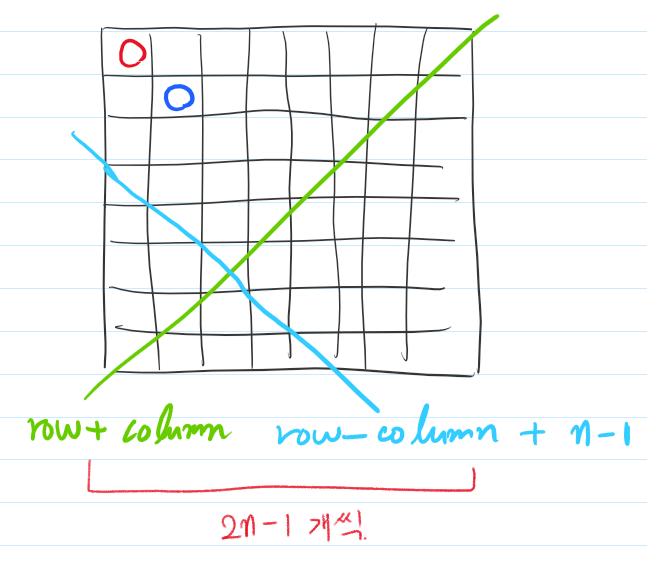 row + column
row - column + n-1
2n-1 개씩.